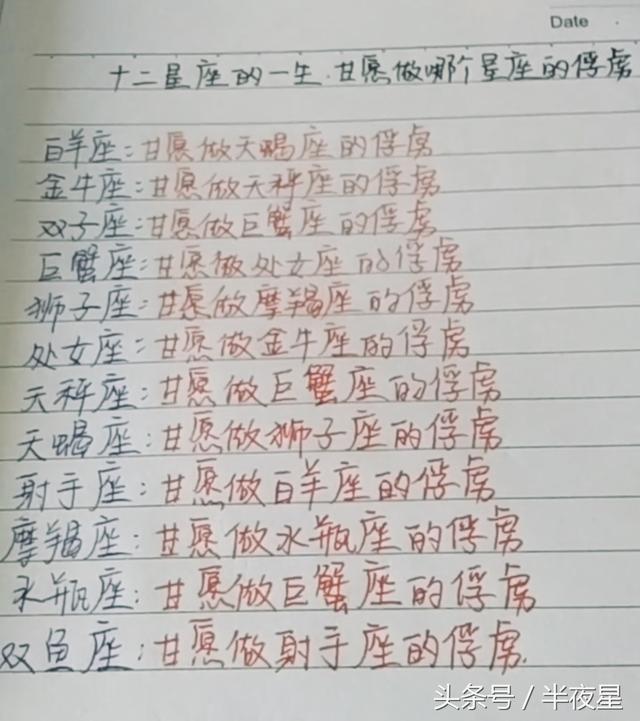 Date
十二星座的一生.甘愿做哪个星座的俘虏
白羊座:甘愿做天蝎座的俘虏
金牛座:甘愿做天秤座的俘虏
双子座:甘愿做巨蟹座的俘虏
巨蟹座:甘愿做处女座的俘虏
狮子座:甘愿做摩羯座的俘虏
处女座:甘愿做金牛座的俘虏
天秤座:甘愿做巨蟹座的俘虏
天蝎座:甘愿做狮子座的俘虏
射手座:甘愿做白羊座的俘虏
摩羯座:甘愿做水瓶座的俘虏
水瓶座:甘愿做巨蟹座的俘虏
双鱼座:甘愿做射手座的俘虏.
头条号 / 半夜星